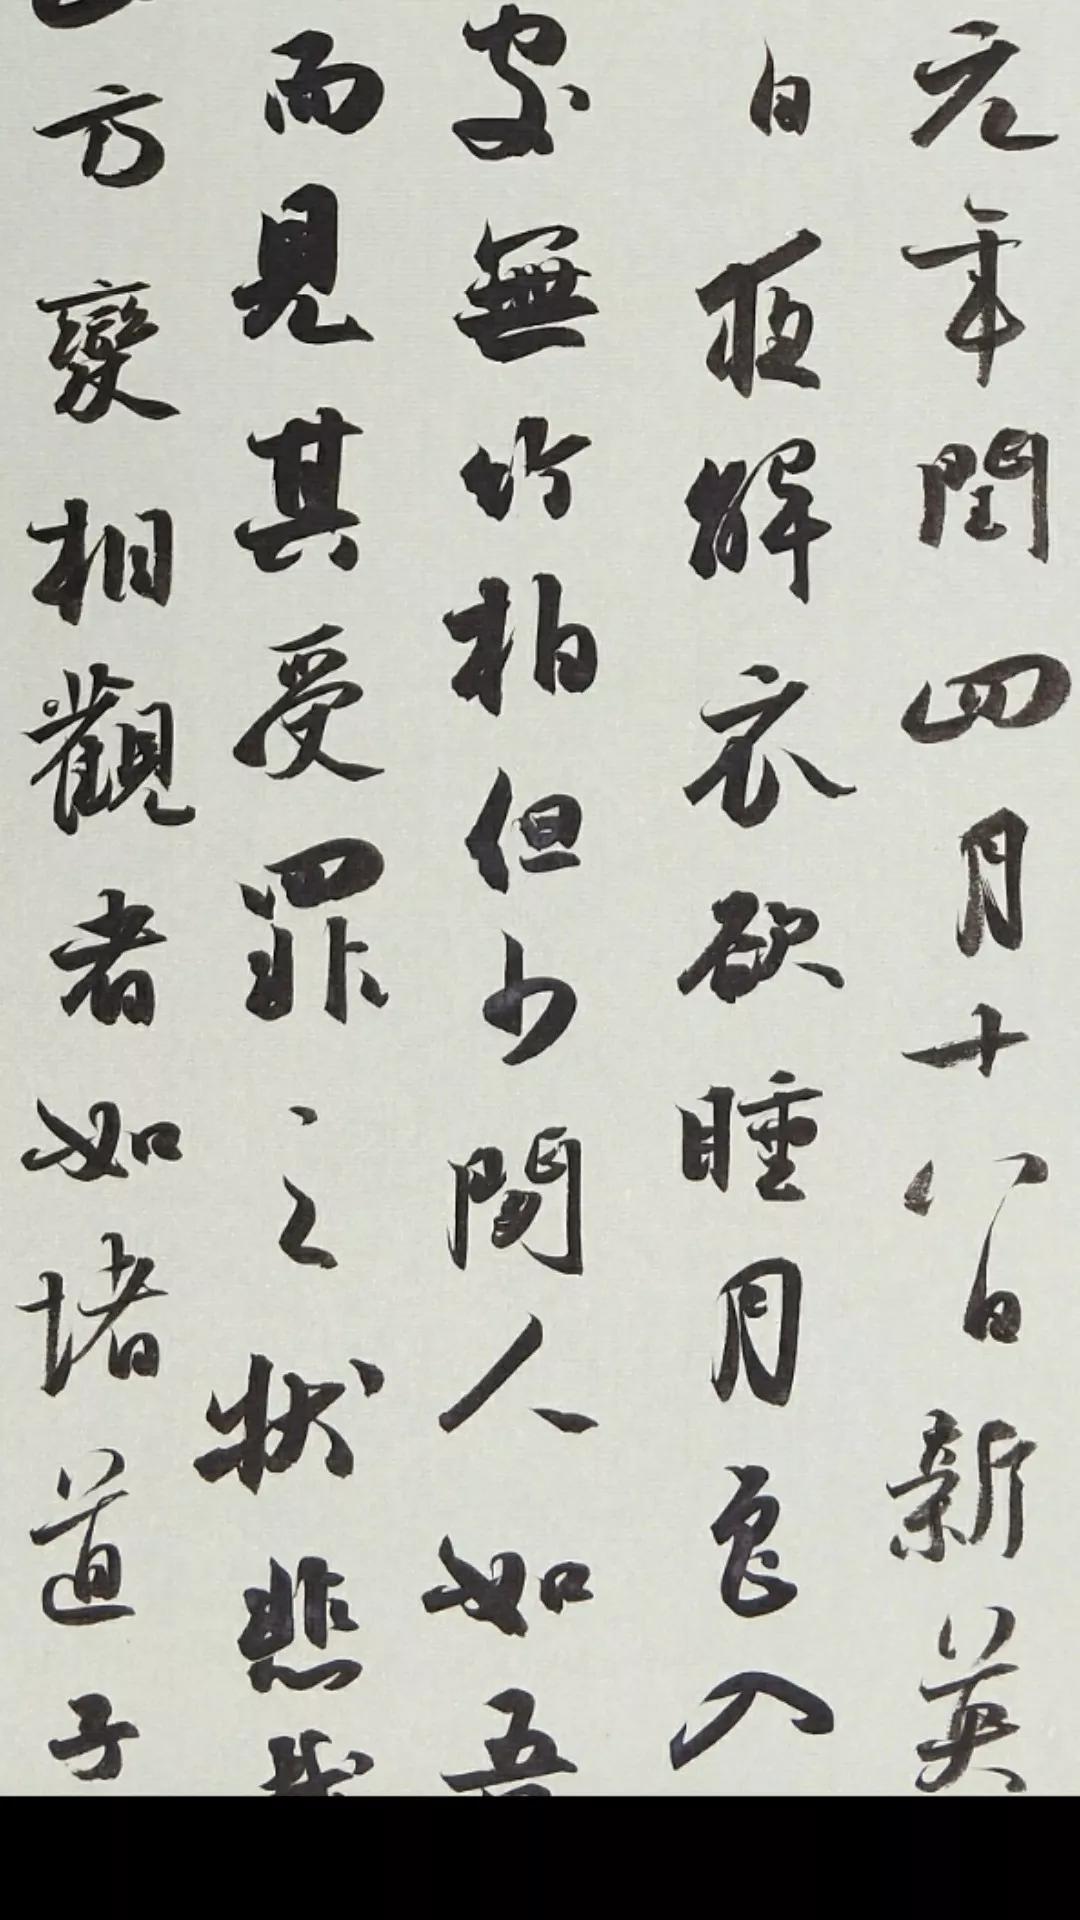 元年閏四月十八日新英
日夜解衣欲睡月色入
處無竹柏但少閑人如吾
而見其受罪之狀悲哉
方變相觀者如堵道子